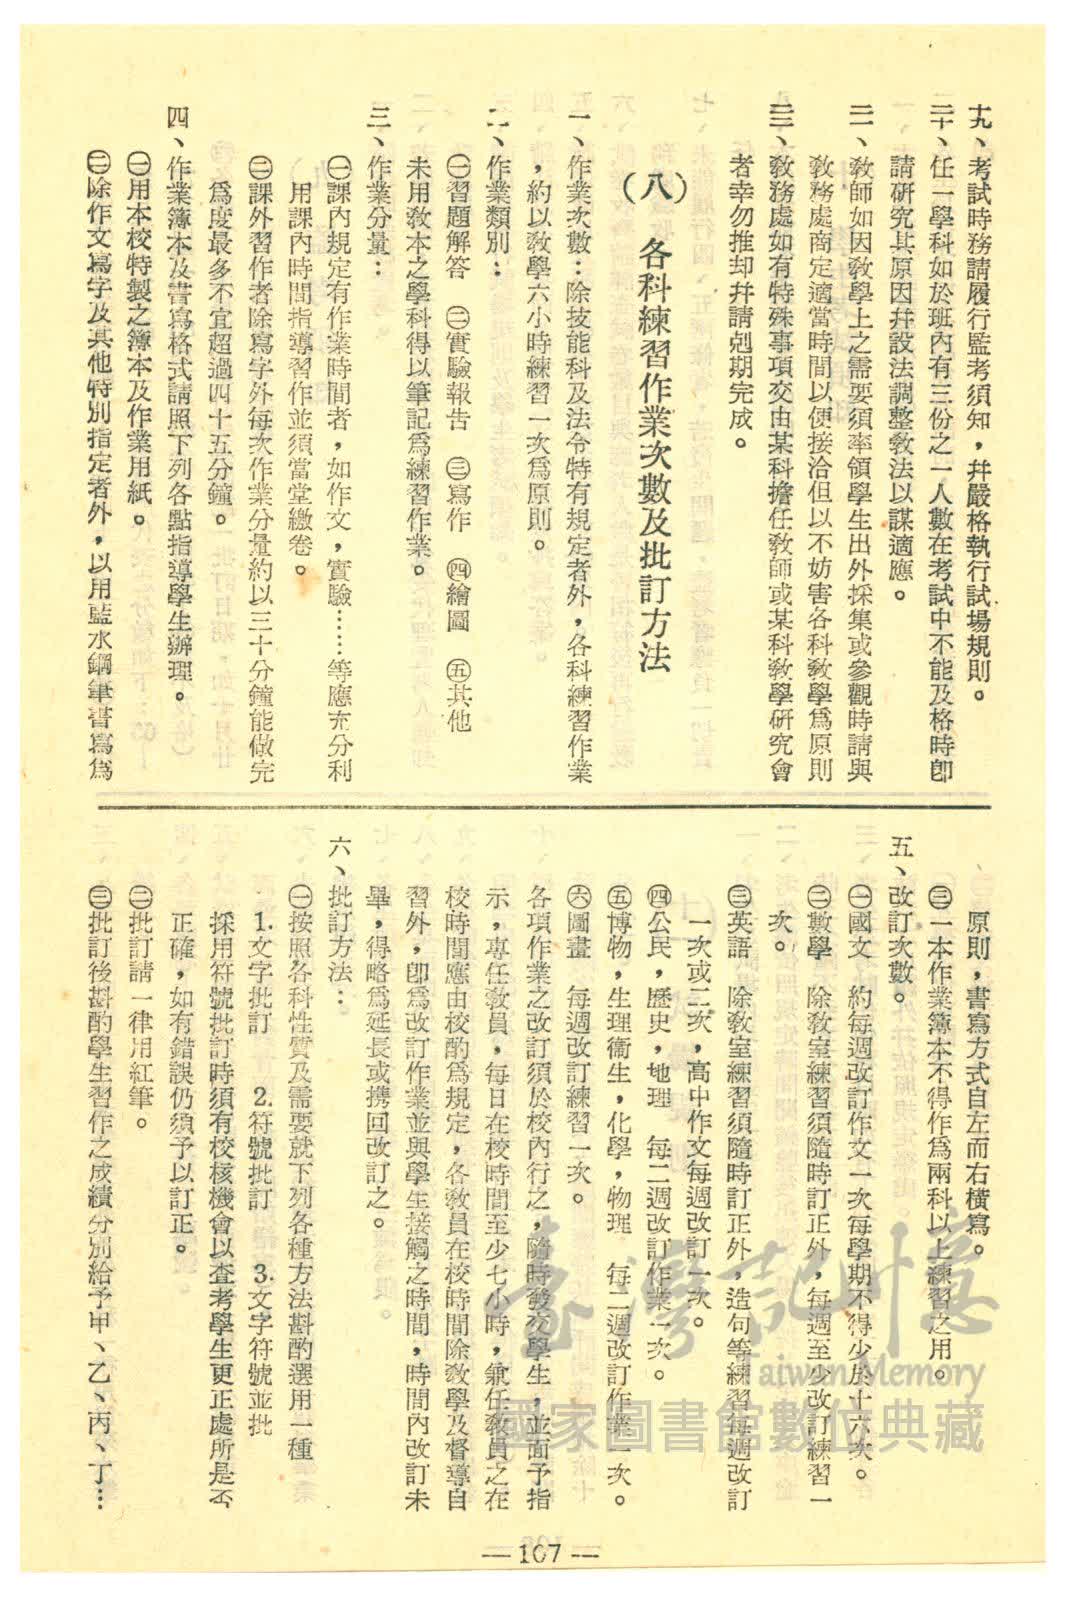 十九、考試時務請履行監考須知，幷嚴格執行試場規則。
二十、任一學科如於班內有三份之一人數在考試中不能及格時卽
請研究其原因幷設法調整敎法以謀適應。
二一、敎師如因敎學上之需要須率領學生出外採集或參觀時請與
敎務處商定適當時間以便接洽但以不妨害各科敎學爲原則
二二、敎務處如有特殊事項交由某科擔任敎師或某科敎學研究會
者幸勿推却幷請剋期完成。
（八）　各科練習作業次數及批訂方法
一、作業次數：除技能科及法令特有規定者外，各科練習作業
，約以敎學六小時練習一次爲原則。
二、作業類別：
㊀習題解答　㊁實驗報告　㊂寫作　㊃繪圖　㊄其他
未用敎本之學科得以筆記爲練習作業。
三、作業分量：
㊀課內規定有作業時間者，如作文，實驗……等應充分利
用課內時間指導習作並須當堂繳卷。
㊁課外習作者除寫字外每次作業分量約以三十分鐘能做完
爲度最多不宜超過四十五分鐘。
四、作業簿本及書寫格式請照下列各點指導學生辦理。
㊀用本校特製之簿本及作業用紙。
㊁除作文寫字及其他特別指定者外，以用藍水鋼筆書寫爲
原則，書寫方式自左而右橫寫。
㊂一本作業簿本不得作爲兩科以上練習之用。
五、改訂次數。
㊀國文　約每週改訂作文一次每學期不得少於十六次。
㊁數學　除敎室練習須隨時訂正外，每週至少改訂練習一
次。
㊂英語　除敎室練習須隨時訂正外，造句等練習每週改訂
一次或二次，高中作文每週改訂一次。
㊃公民，歷史，地理　每二週改訂作業一次。
㊄博物，生理衞生，化學，物理　每二週改訂作業一次。
㊅圖畫　每週改訂練習一次。
各項作業之改訂須於校內行之，隨時發交學生，並面予指
示，專任敎員，每日在校時間至少七小時，兼任敎員之在
校時間應由校酌爲規定，各敎員在校時間除敎學及督導自
習外，卽爲改訂作業並與學生接觸之時間，時間內改訂未
畢，得略爲延長或携回改訂之。
六、批訂方法：
㊀按照各科性質及需要就下列各種方法斟酌選用一種
1.文字批訂　2.符號批訂　3.文字符號並批
採用符號批訂時須有校核機會以査考學生更正處所是否
正確，如有錯誤仍須予以訂正。
㊁批訂請一律用紅筆。
㊂批訂後斟酌學生習作之成績分別給予甲、乙、丙、丁…
— 107 —
臺灣記憶
Taiwan Memory
國家圖書館數位典藏